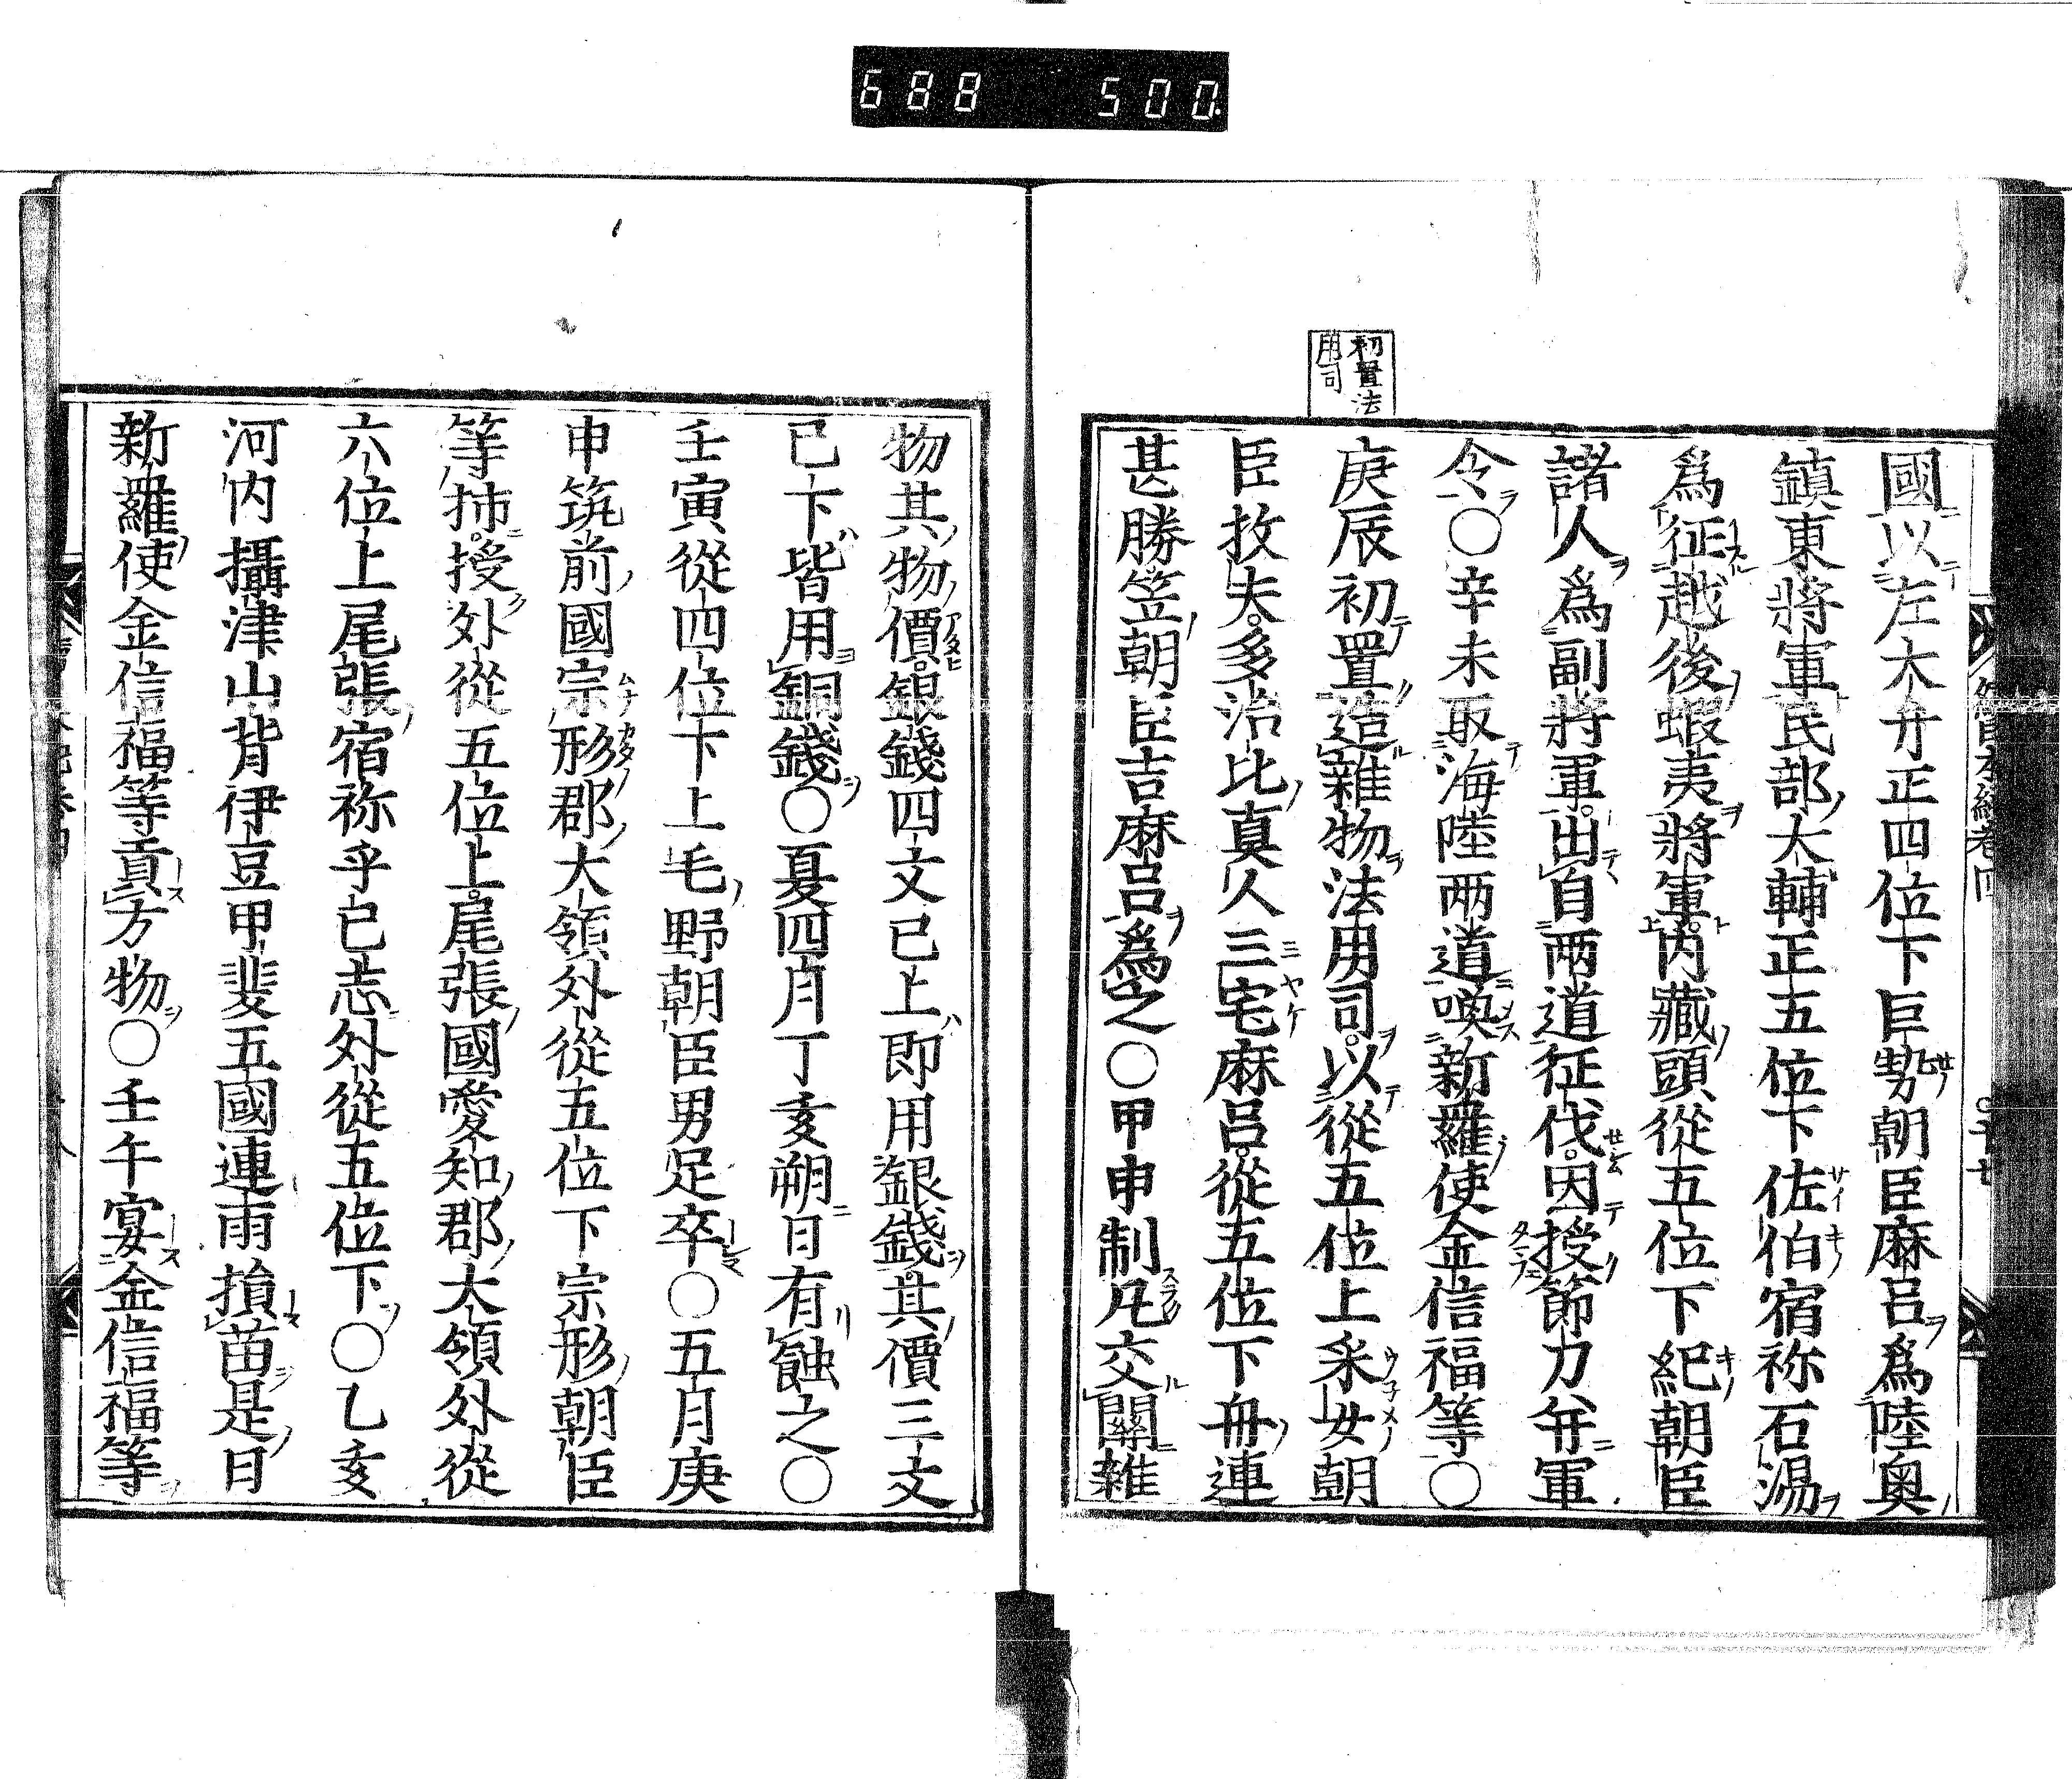 688 500
初置法
用司
國以左大弁正四位下巨勢朝臣麻呂爲陸奥
鎮東將軍民部大輔正五位下佐伯宿祢石湯
爲征越後蝦夷將軍内藏頭從五位下紀朝臣
諸人爲副將軍出自两道征伐因授節力并軍
令○辛未取海陸两道喚新羅使金信福等○
庚辰初置造雜物法用司以從五位上釆女朝
臣枚夫多治比真人三宅麻呂從五位下舟連
甚勝笠朝臣吉麻呂爲之○甲申制凡交關雜
物其物價銀錢四文已上即用銀錢其價三文
已下皆用銅錢○夏四月丁亥朔日有蝕之○
壬寅從四位下上毛野朝臣男足卒○五月庚
申筑前國宗形郡大領外從五位下宗形朝臣
等抪授外從五位上尾張國愛知郡大領外從
六位上尾張宿祢乎已志外從五位下○乙亥
河内攝津山背伊豆甲斐五國連雨損苗是日
新羅使金信福等貢方物○壬午宴金信福等